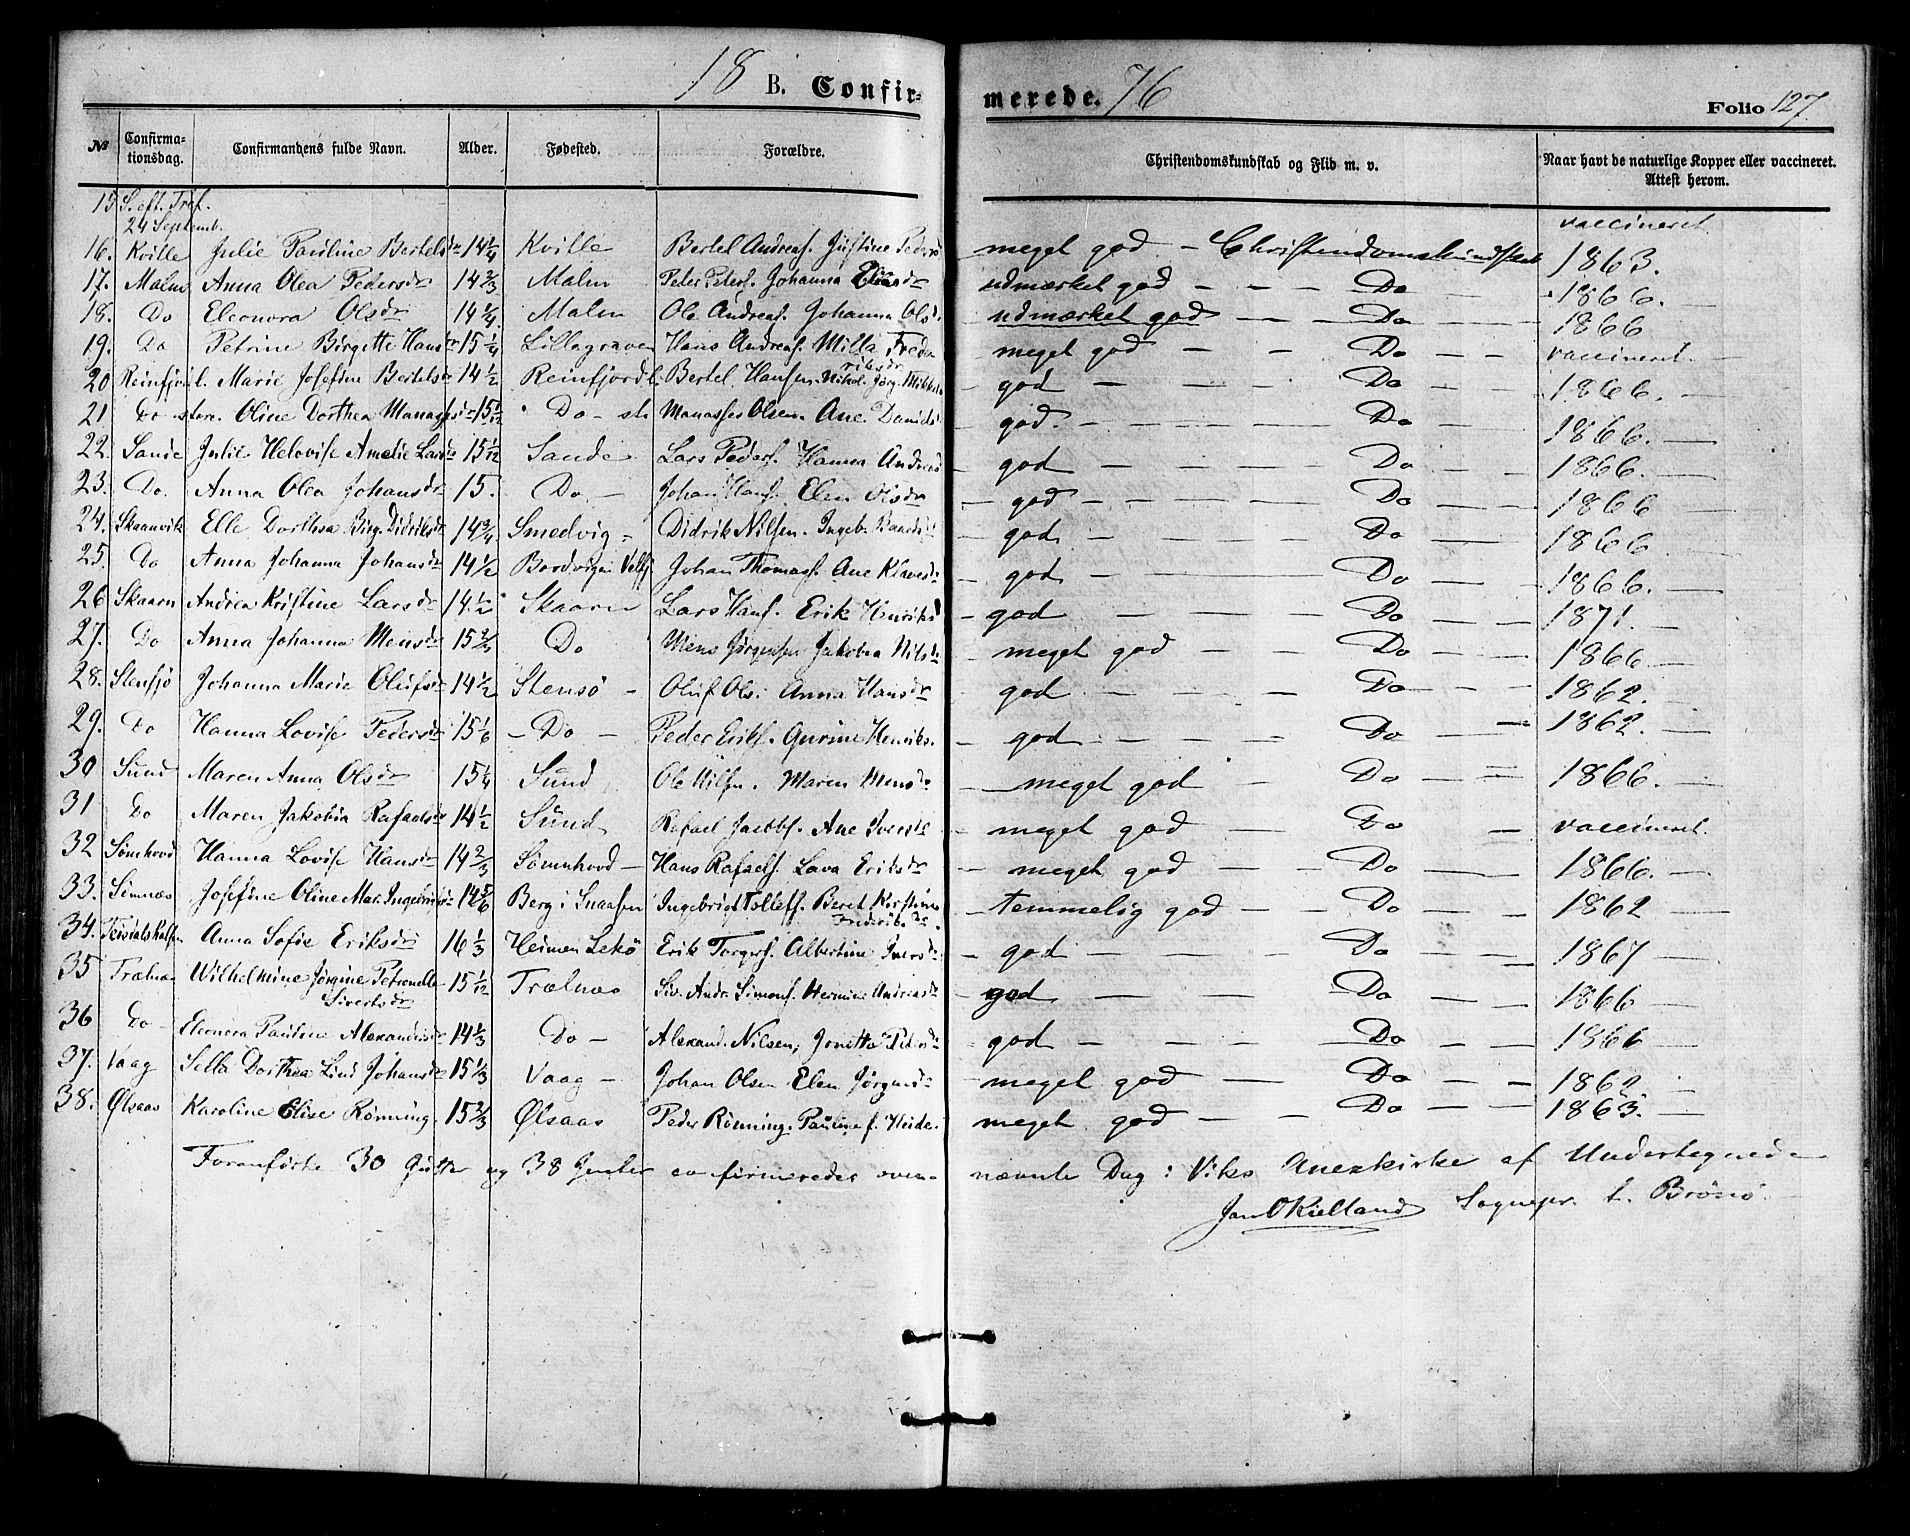 18 B. Confirmerede. 76 Folio 127.
№ Confirmationsdag. Confirmandens fulde Navn. Alder. Fødested. Forældre. Christendomskundskab og Flid m. v. Naar havt de naturlige Kopper eller vaccineret. Attest herom.
15 S. eft. Tref.
24 Septemb.
16. Kville Julie Pauline Bertelsdr 14 1/4 Kville Bertel Andreas. Justine Peders meget god – Christendomskundskab vaccineret 1863.
17. Malm Anna Olea Pedersdr 14 2/3 Malm Peter Peters. Johanna Eliasdr udmærket god – – – Do – 1866.
18. Do Eleonora Olsdr 14 1/4 Malm Ole Andreas. Johanna Olsd. udmærket god – – Do – – 1866
19. Do Petrine Birgitte Hansdr 15 1/4 Lillegraven Hans Andreas. Milla Frederiksdr meget god – – Do – – vaccineret.
20 Reinfjord l. Marie Josefine Bertelsdr 14 1/2 Reinfjord l. Bertel Hansen. Nikol. Jørg. god – – – Do – – 1866. –
21 Do store. Oline Dorthea Manassesdr 15 1/12 Do – st. Manasses Olsen. Ane Daniels. god – – – Do – – 1866. –
22. Sande Julie Helovise Amelie Larsdr 15 1/12 Sande Lars Peders. Hanna Andreas god – – – Do – – 1866. –
23. Do. Anna Olea Johansdr 15. Do – Johan Hans. Elen Olsdr – god – – – Do – – 1866
24. Skaanvik Elle Dorthea Birg. Didriksdr 14 3/4 Smedvig – Didrik Nilsen. Ingeb. Baards. god – – – Do – – 1866.
25. Do Anna Johanna Johansdr 14 1/2 Bordvigen Velfj. Johan Thomass. Ane Klavesdr – god – – – Do – – 1866. –
26 Skaarn Andrea Kristine Larsdr 14 1/2 Skaarn Lars Hans. Erik Henriks – god – – – Do – – 1871. –
27. Do Anna Johanna Mensdr 15 2/3 Do Mens Jørgensen Jakobia Nilsdr – meget god – – Do – – 1866 –
28. Stensjø Johanna Marie Olufsdr 14 1/2 Stensø – Oluf Ols. Anna Hansdr – god – – – Do – – 1862. –
29. Do Hanna Lovise Pedersdr 15 1/6 – Do – Peder Eriks. Gurine Henriks. – god – – – Do – 1862. –
30 Sund Maren Anna Olsdr 15 1/4 Sund Ole Nilsen. Maren Mensdr – meget god – Do – = 1866. –
31 Do Maren Jakobia Rafaelsdr 14 1/2 Sund Rafael Jacobs. Ane Iversdr – meget god – Do – vaccineret.
32 Sømhovd Hanna Lovise Hansdr 14 2/3 Sømnhovd – Hans Rafaels. Lava Eriksdr – meget god – Do – – 1866. –
33. Sömnæs Josefine Oline Mar. Ingebrigtsdr 14 5/6 Berg i Snaasen Ingebrigt Tollefs. Beret Kirstine Frederik. – temmelig god – – Do – – 1862 –
34. Anna Sofie Eriksdr 16 1/3 Heimen Lekö Erik Torgers. Albertine Iversdr – god – – – Do – – 1867 –
35 Trælnæs Wilhelmine Jørgine Petronelle Sivertsdr 15 1/12 Trælnæs Siv. Andr. Simons. Hermine Andreasdr – god – – – Do – – 1866 –
36 Do – Eleonora Pauline Alexandersdr 14 1/3 Do – Alexand. Nilsen, Jonetta Pedersdr god – – – Do – – 1866 –
37. Vaag Sella Dorthea Lind Johansdr 15 1/3 Vaag – Johan Olsen Elen Jørgensdr – meget god – – Do – – 1862 –
38. Ølsaas Karoline Elise Rönning. 15 2/3 Ølsaas Peder Rönning. Pauline f. Heide. meget god – – Do – – 1863. –
Foranførte 30 Gutter og 38 Jenter confirmeredes ovennævnte Dag i Viks Anexkirke af Undertegnede
Jan O Kielland Sognepr. t. Brönö.